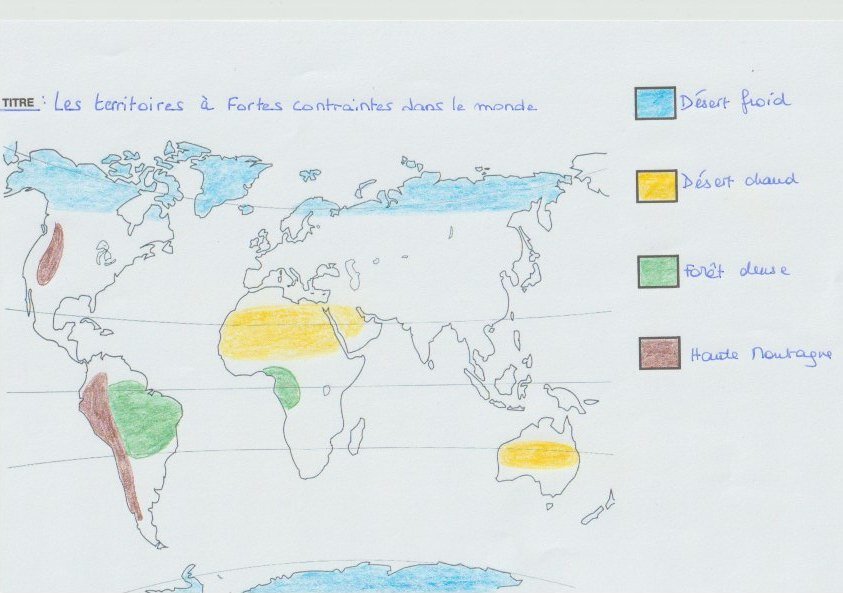 TITRE : Les territoires à Fortes contraintes dans le monde
Désert froid
Désert chaud
Forêt dense
Haute Montagne